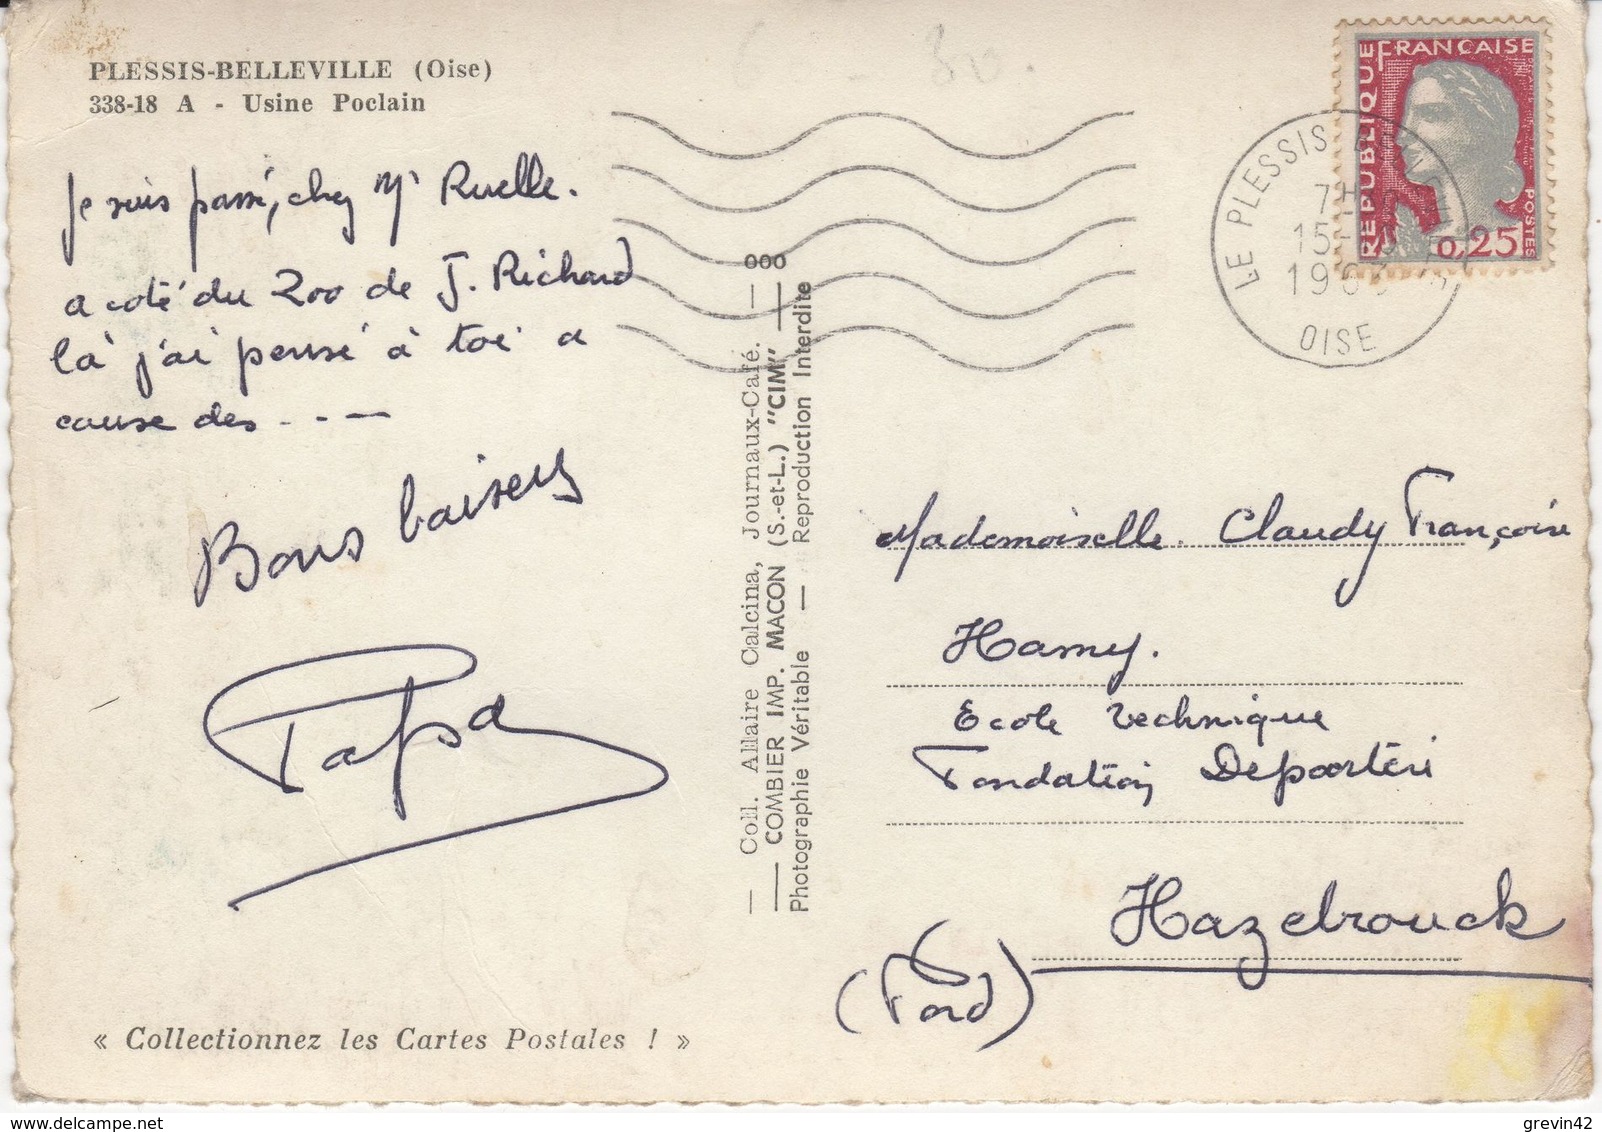 PLESSIS-BELLEVILLE (Oise)
338-18 A - Usine Poclain
je suis passé, chez Mr Ruelle.
a coté du Zoo de J. Richard
là j'ai pensé à toi a
cause des . . —
Bons baisers
Papa
« Collectionnez les Cartes Postales ! »
— Coll. Allaire Calcina, Journaux-Café. — 000
— COMBIER IMP. MACON (S.-et-L.) "CIM" —
Photographie Véritable — Reproduction Interdite
REPUBLIQUE FRANÇAISE
POSTES
0,25
LE PLESSIS
7H
15-
OISE
Mademoiselle Claudy Françoise
Hamy.
Ecole Technique
Fondation Depoorteri
Hazebrouck
(Nord)
grevin42